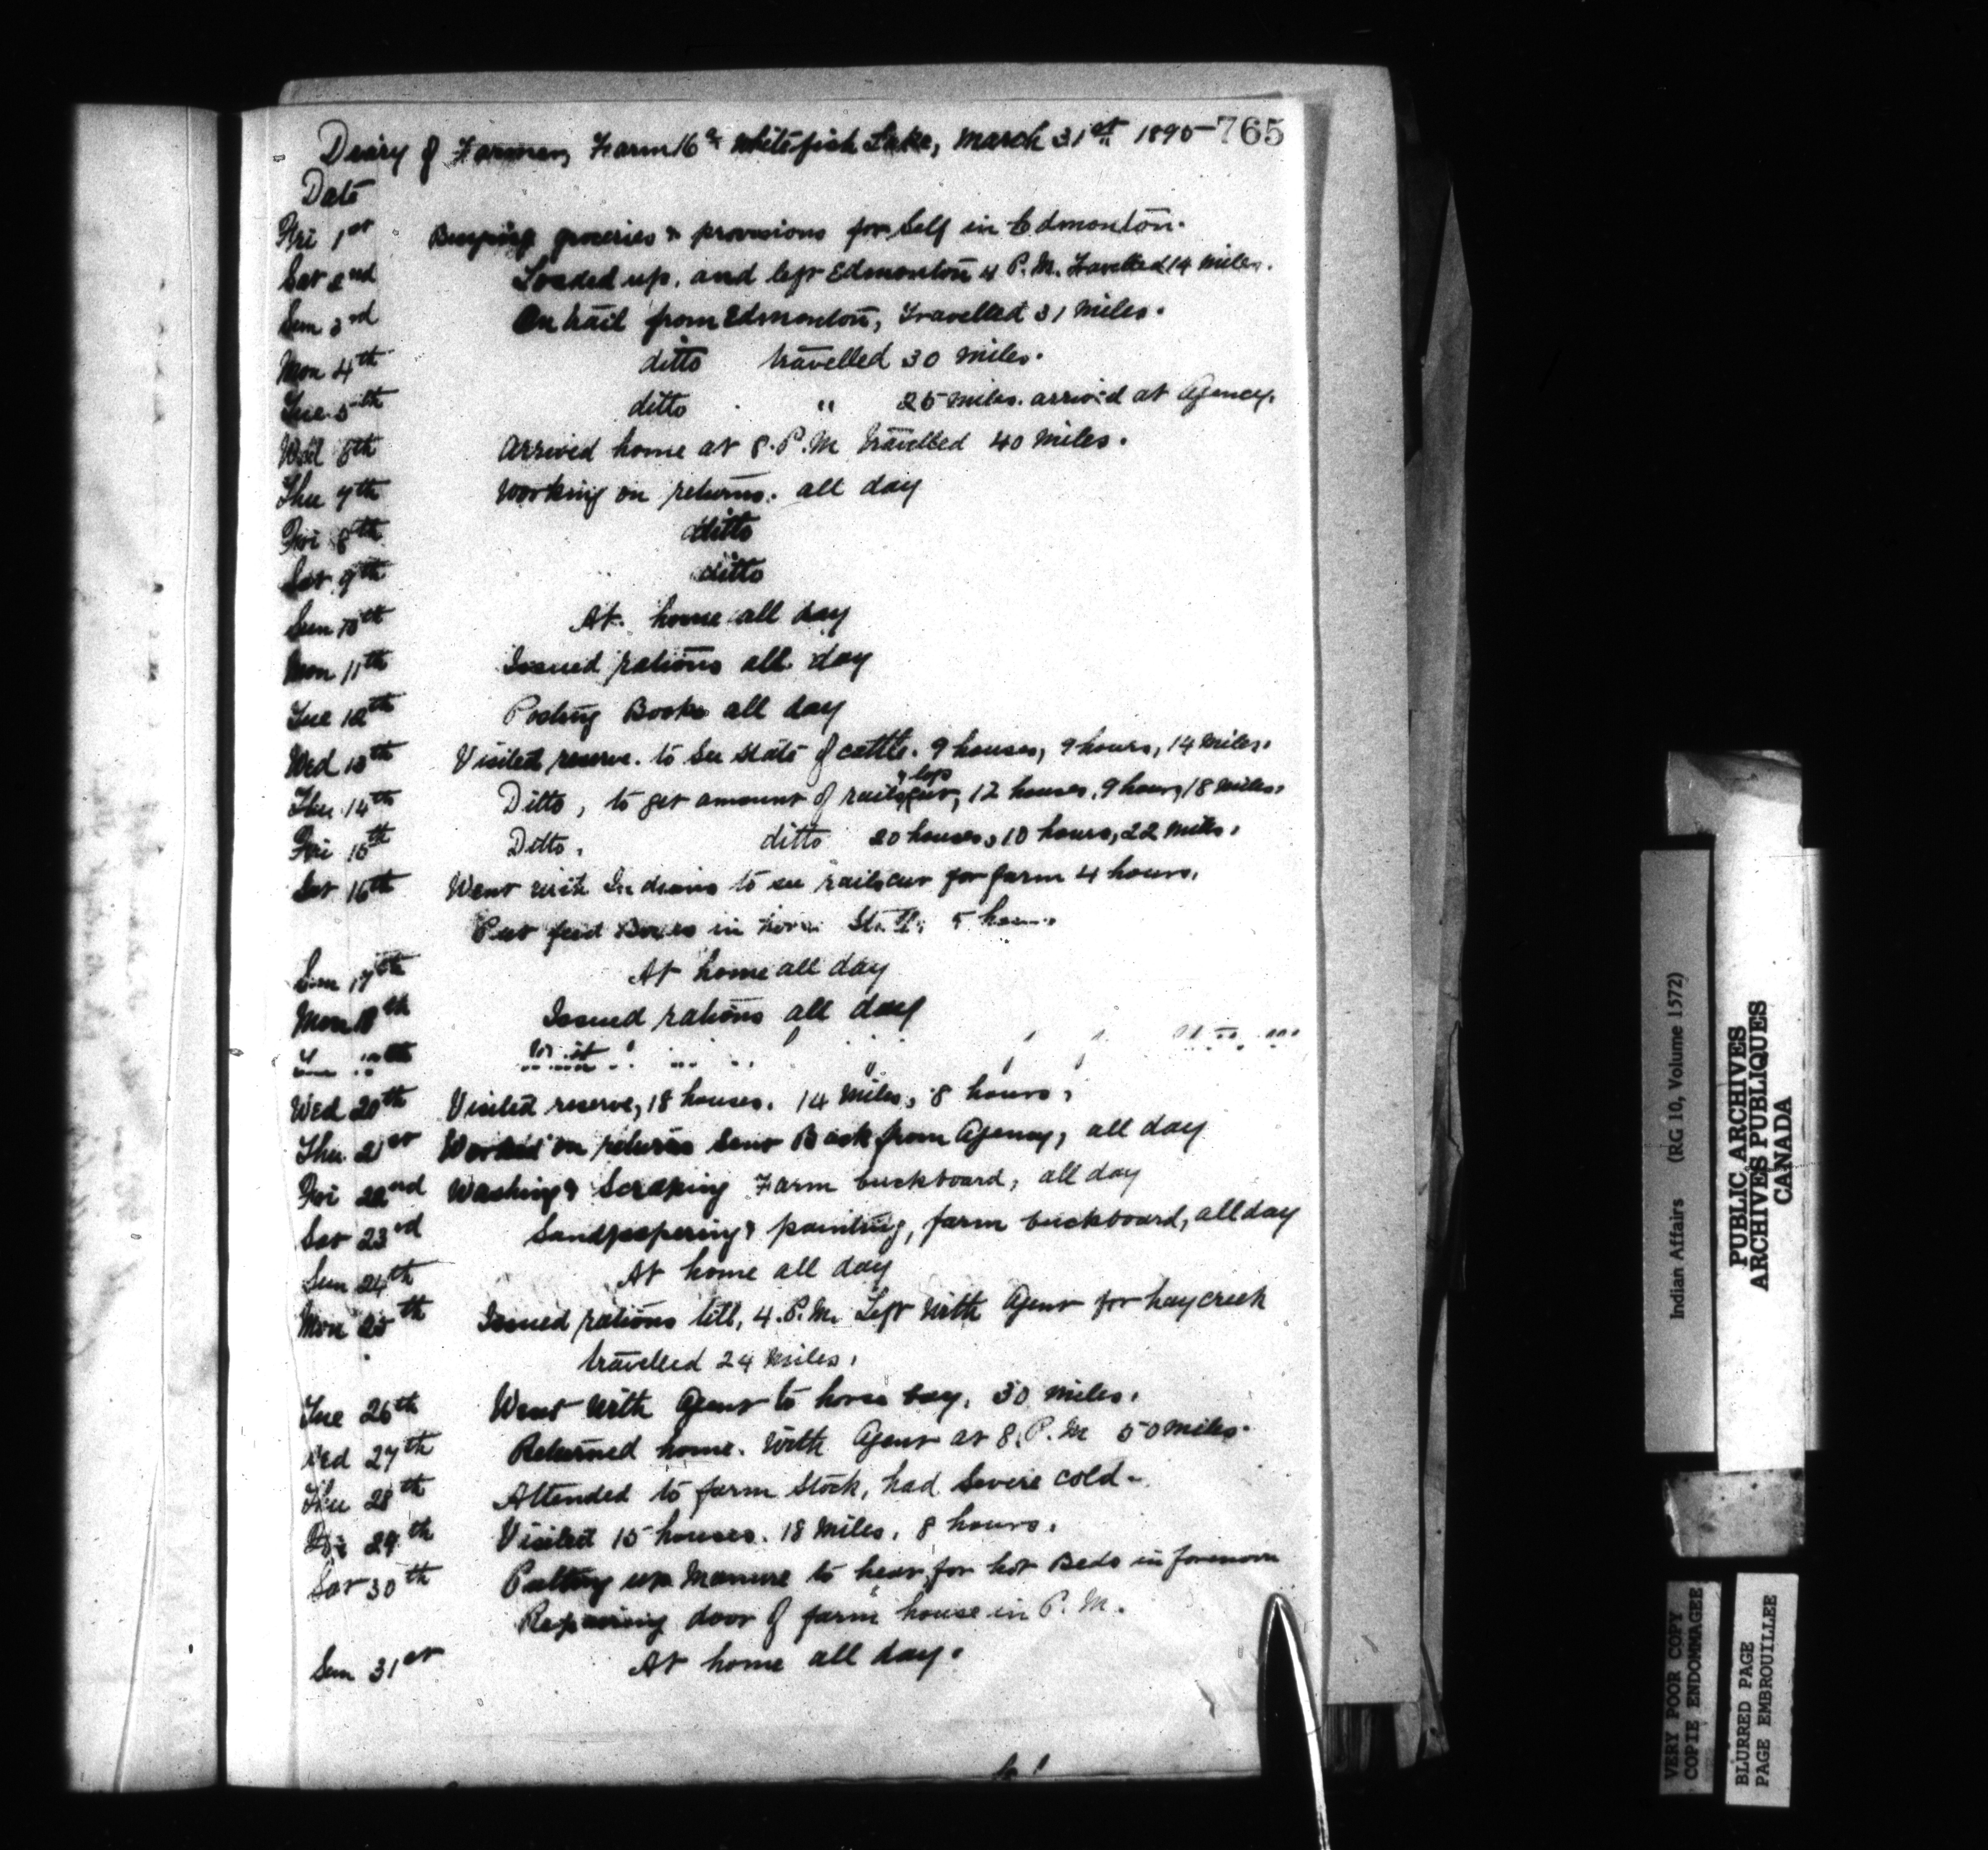 Diary of Farmer, Farm 16a Whitefish Lake, March 31st 1895 765
Date
Fri 1st Buying groceries & provisions for Self in Edmonton.
Sat 2nd Loaded up, and left Edmonton 4 P.M. Travelled 14 miles.
Sun 3rd On trail from Edmonton, Travelled 31 Miles.
Mon 4th ditto travelled 30 miles.
Tue 5th ditto " 25 miles. arrived at Agency.
Wed 6th Arrived home at 8.P.M travelled 40 miles.
Thu 7th Working on returns. all day
Fri 8th ditto
Sat 9th ditto
Sun 10th At home all day
Mon 11th Issued rations all day
Tue 12th Posting Books all day
Wed 13th Visited reserve. to See state of cattle. 9 houses, 9 hours, 14 Miles.
Thu 14th Ditto, to get amount of rails & logs cut, 12 houses. 9 hours, 18 miles.
Fri 15th Ditto, ditto 20 houses, 10 hours, 22 miles.
Sat 16th Went with Indians to see rails cut for farm 4 hours.
Put feed Boxes in 5
Sun 17th At home all day
Mon 18th Issued rations all day
Wed 20th Visited reserve, 18 houses. 14 Miles, 8 hours,
Thu 21st Worked on returns Sent Back from Agency, all day
Fri 22nd Washing & Scraping Farm buckboard, all day
Sat 23rd Sandpapering & painting, farm buckboard, all day
Sun 24th At home all day
Mon 25th Issued rations till, 4.P.M. Left with Agent for hay creek
travelled 24 Miles.
Tue 26th Went with Agent to horse bay. 30 miles.
Wed 27th Returned home. With Agent at 8.P.M 50 miles.
Thu 28th Attended to farm Stock, had Severe cold.
Fri 29th Visited 15 houses. 18 Miles, 8 hours.
Sat 30th Putting up Manure to heat for hot Beds in forenoon
Repairing door of farm house in P.M.
Sun 31st At home all day.
Indian Affairs (RG 10, Volume 1572)
PUBLIC ARCHIVES
ARCHIVES PUBLIQUES
CANADA
VERY POOR COPY
COPIE ENDOMMAGEE
BLURRED PAGE
PAGE EMBROUILLEE